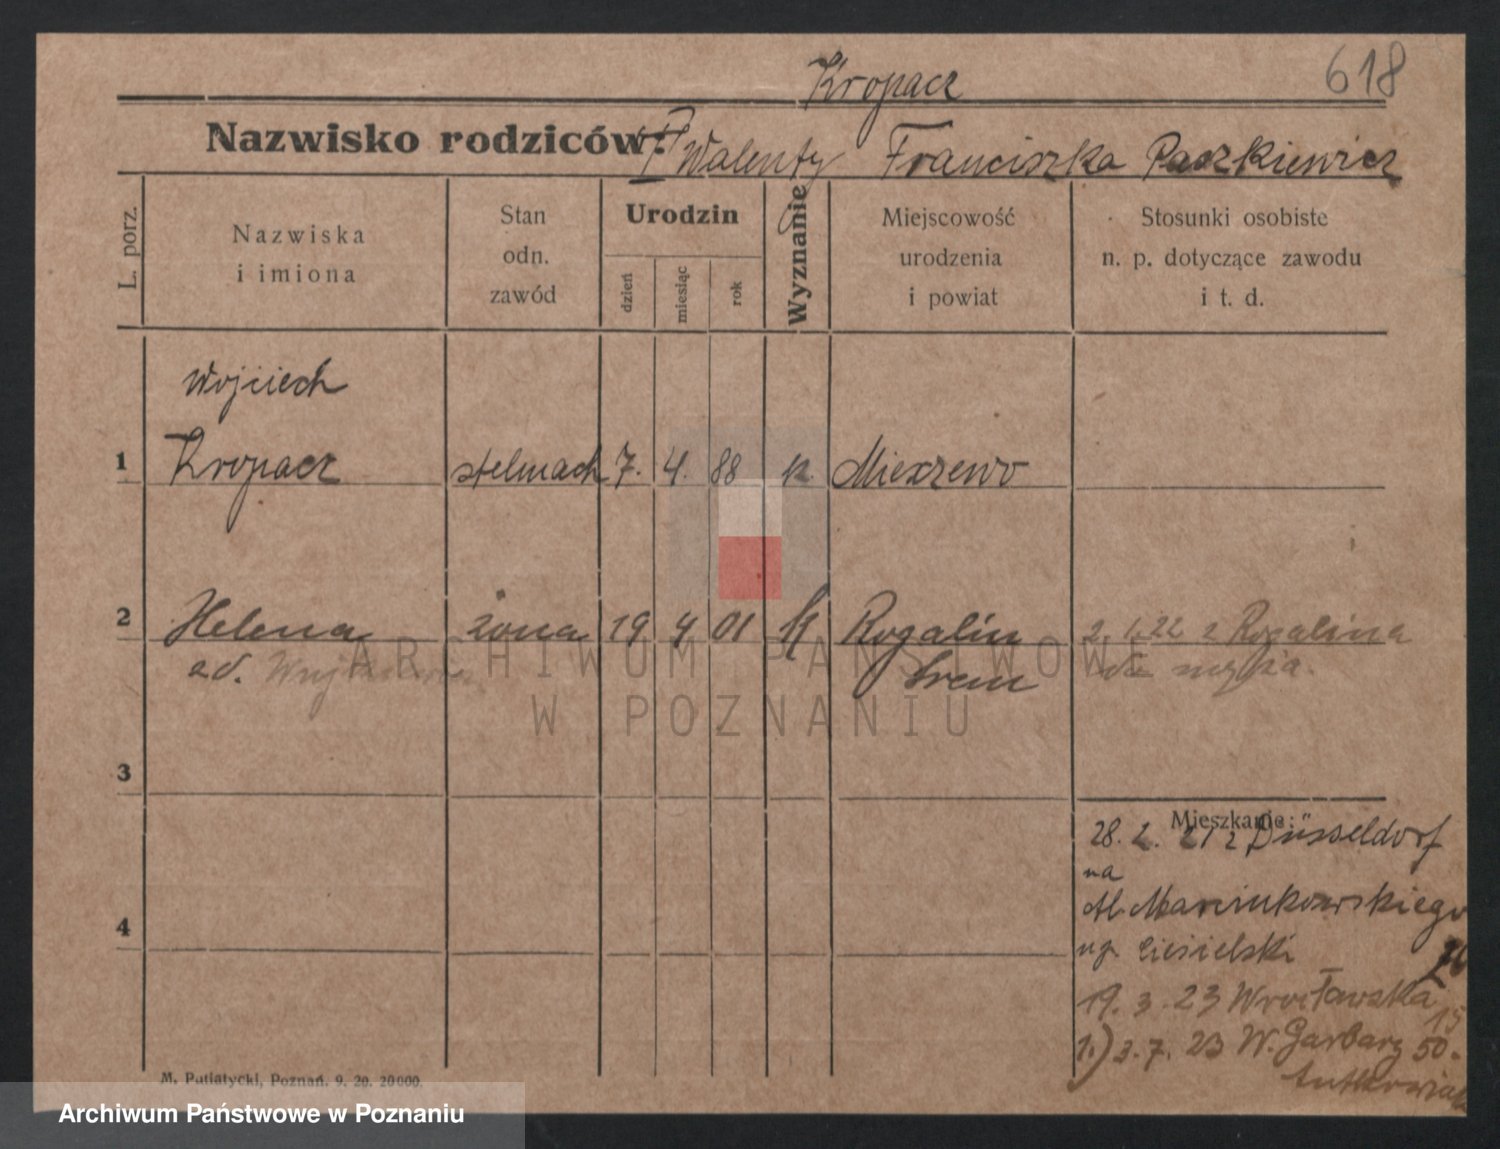 Kropacz 618
Nazwisko rodziców: Walenty Franciszka Paszkiewicz
L. porz.
Nazwiska i imiona
Stan odn. zawód
Urodzin
dzień miesiąc rok
Wyznanie
Miejscowość urodzenia i powiat
Stosunki osobiste n. p. dotyczące zawodu i t. d.
Wojciech
1 Kropacz stelmach 7. 4. 88 k. Mieszewo
2 Helena żona 19 4 01 k Rogalin 2. 1. 22 z Rogalina
ad. Śrem do męża.
3
Mieszkanie:
28. 2. 21 z Düsseldorf
na
Al. Marcinkowskiego
up. Ciesielski 26
4
19. 3. 23 Wrocławska 15
1.) 3. 7. 23 W. Garbary 50.
M. Putiatycki, Poznań. 9. 20. 20000.
ARCHIWUM PAŃSTWOWE
W POZNANIU
Archiwum Państwowe w Poznaniu